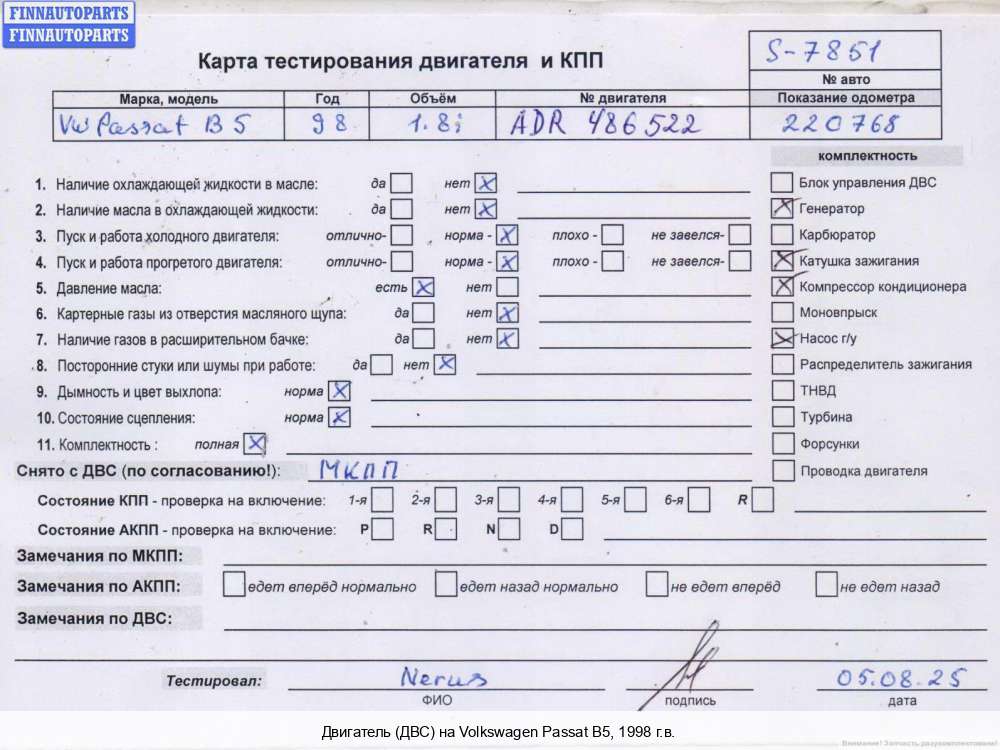 FINNAUTOPARTS
FINNAUTOPARTS
Карта тестирования двигателя и КПП
S-7851
№ авто
Марка, модель Год Объём № двигателя Показание одометра
VW Passat B5 98 1.8i ADR 486522 220768
комплектность
1. Наличие охлаждающей жидкости в масле: да нет X
Блок управления ДВС
2. Наличие масла в охлаждающей жидкости: да нет X
X Генератор
3. Пуск и работа холодного двигателя: отлично- норма - X плохо - не завелся-
Карбюратор
4. Пуск и работа прогретого двигателя: отлично- норма - X плохо - не завелся-
X Катушка зажигания
5. Давление масла: есть X нет
X Компрессор кондиционера
6. Картерные газы из отверстия масляного щупа: да нет X
Моновпрыск
7. Наличие газов в расширительном бачке: да нет X
X Насос г/у
8. Посторонние стуки или шумы при работе: да нет X
Распределитель зажигания
9. Дымность и цвет выхлопа: норма X
ТНВД
10. Состояние сцепления: норма X
Турбина
11. Комплектность : полная X
Форсунки
Снято с ДВС (по согласованию!): МКПП
Проводка двигателя
Состояние КПП - проверка на включение: 1-я 2-я 3-я 4-я 5-я 6-я R
Состояние АКПП - проверка на включение: P R N D
Замечания по МКПП:
Замечания по АКПП: едет вперёд нормально едет назад нормально не едет вперёд не едет назад
Замечания по ДВС:
Тестировал: Nerus 05.08.25
ФИО подпись дата
Двигатель (ДВС) на Volkswagen Passat B5, 1998 г.в.
Внимание! Запчасть разукомплектована!